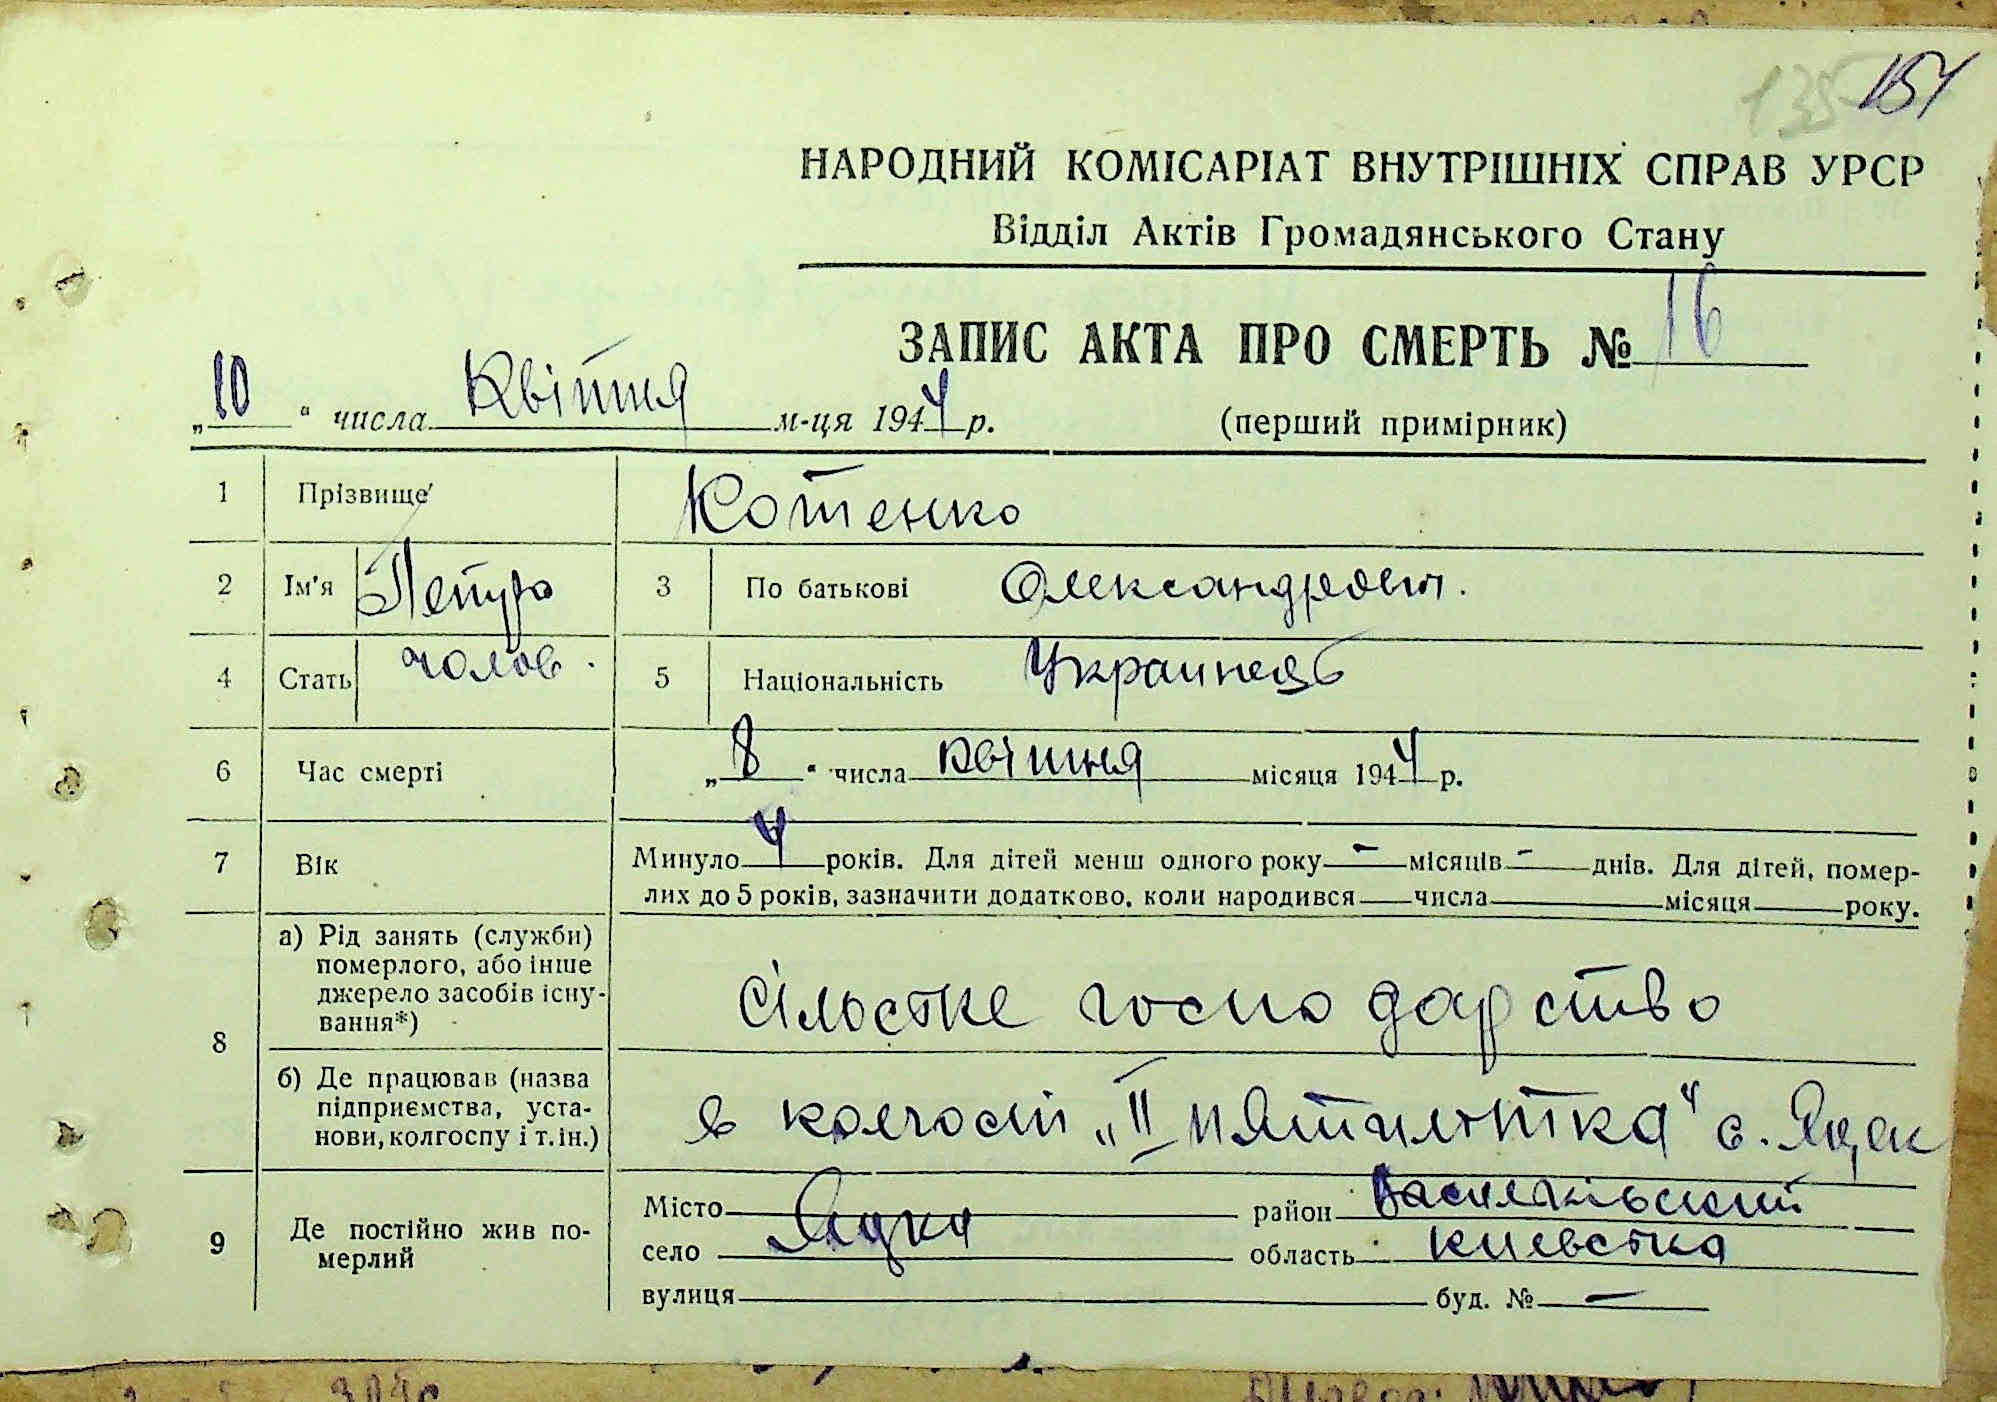 135 154
НАРОДНИЙ КОМІСАРІАТ ВНУТРІШНІХ СПРАВ УРСР
Відділ Актів Громадянського Стану
ЗАПИС АКТА ПРО СМЕРТЬ № 16
„10“ числа Квітня м-ця 1944 р. (перший примірник)
1 Прізвище Котенко
2 Ім'я Петро 3 По батькові Олександрович.
4 Стать чолов. 5 Національність Украинець
6 Час смерті „8“ числа квітня місяця 1944 р.
7 Вік Минуло 4 років. Для дітей менш одного року - місяців - днів. Для дітей, помер-
лих до 5 років, зазначити додатково, коли народився числа місяця року.
8 а) Рід занять (служби) померлого, або інше джерело засобів існу-вання*) Сільстке господарство
б) Де працював (назва підприємства, уста-нови, колгоспу і т. ін.) в колгоспі „II пятилютка“ с. Яцьк
9 Де постійно жив по-мерлий
Місто район Васильківський
село Яцка область Киевстка
вулиця буд. № —